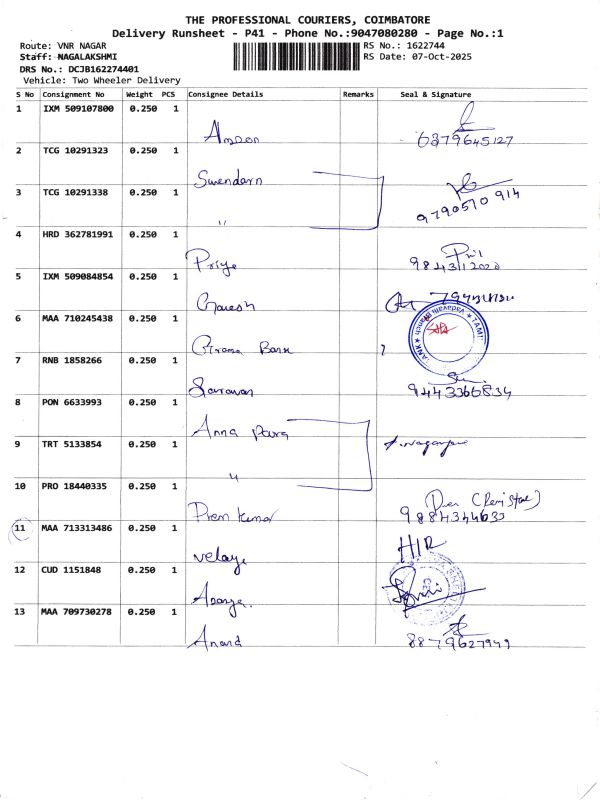 THE PROFESSIONAL COURIERS, COIMBATORE
Delivery Runsheet - P41 - Phone No.:9047080280 - Page No.:1
Route: VNR NAGAR RS No.: 1622744
Staff: NAGALAKSHMI RS Date: 07-Oct-2025
DRS No.: DCJB162274401
Vehicle: Two Wheeler Delivery
S No Consignment No Weight PCS Consignee Details Remarks Seal & Signature
1 IXM 509107800 0.250 1
6379645127
2 TCG 10291323 0.250 1
3 TCG 10291338 0.250 1
" 9790570 914
4 HRD 362781991 0.250 1
Priya
5 IXM 509084854 0.250 1
Ganesh
6 MAA 710245438 0.250 1
Grama Bank
7 RNB 1858266 0.250 1
Saravanan 9443366834
8 PON 6633993 0.250 1
Anna
9 TRT 5133854 0.250 1
"
10 PRO 18440335 0.250 1
Prem kumar 9884344633
11 MAA 713313486 0.250 1
H/R
12 CUD 1151848 0.250 1
13 MAA 709730278 0.250 1
Anand 8879627949